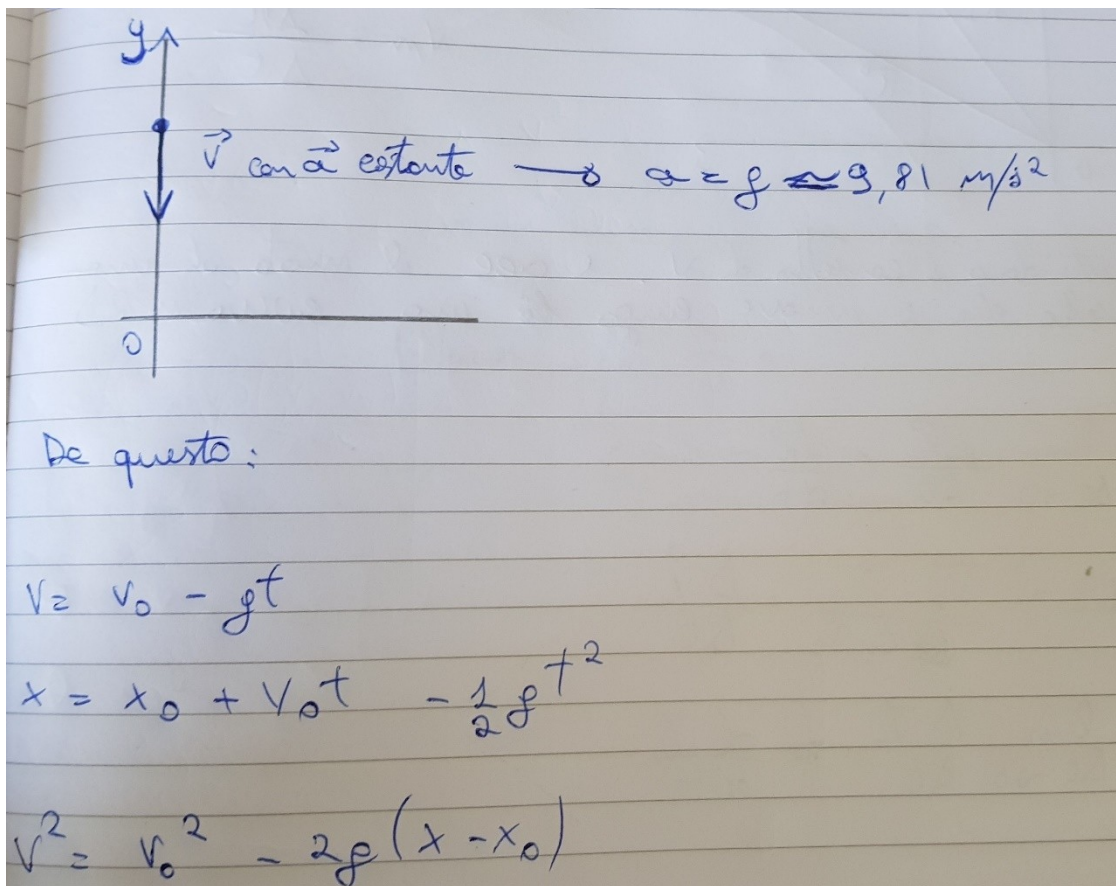 y
v⃗ con a⃗ costante → a = g ≃ 9,81 m/s²
0
Da questo:
V = v₀ - gt
x = x₀ + V₀t - 1/2 gt²
V² = V₀² - 2g(x - x₀)